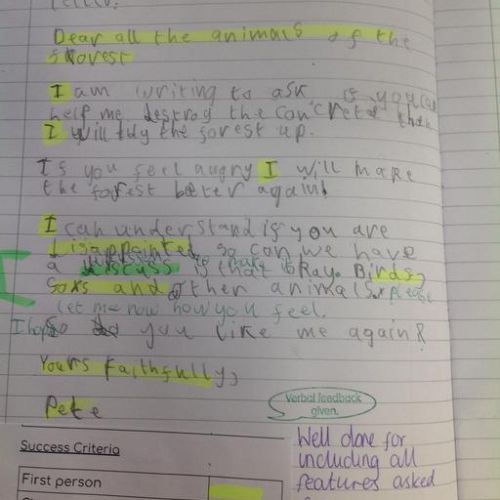 Dear all the animals of the
forest
I am writing to ask if you can
help me destroy the concrete then
I will tidy the forest up.
If you feel angry I will make
the forest better again!
I can understand if you are
disappointed so can we have
a discuss is that okay. Birds,
foxs and other animals please
let me now how you feel.
I hope you like me again?
Yours faithfully,
Pete
Verbal feedback
given.
Success Criteria
First person
Well done for
including all
features asked